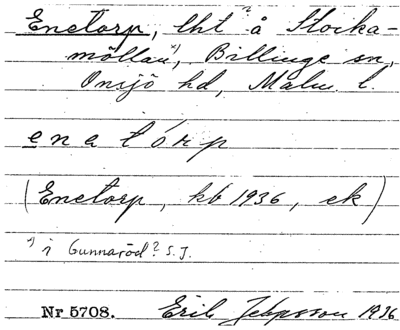 Enetorp, lht ? å Stocka-
möllan *), Billinge sn,
Onsjö hd, Malm. l.
e n a t ó r p
(Enetorp, kb 1936, ek)
*) i Gunnaröd? S.J.
Nr 5708. Erik Jeppsson 1936